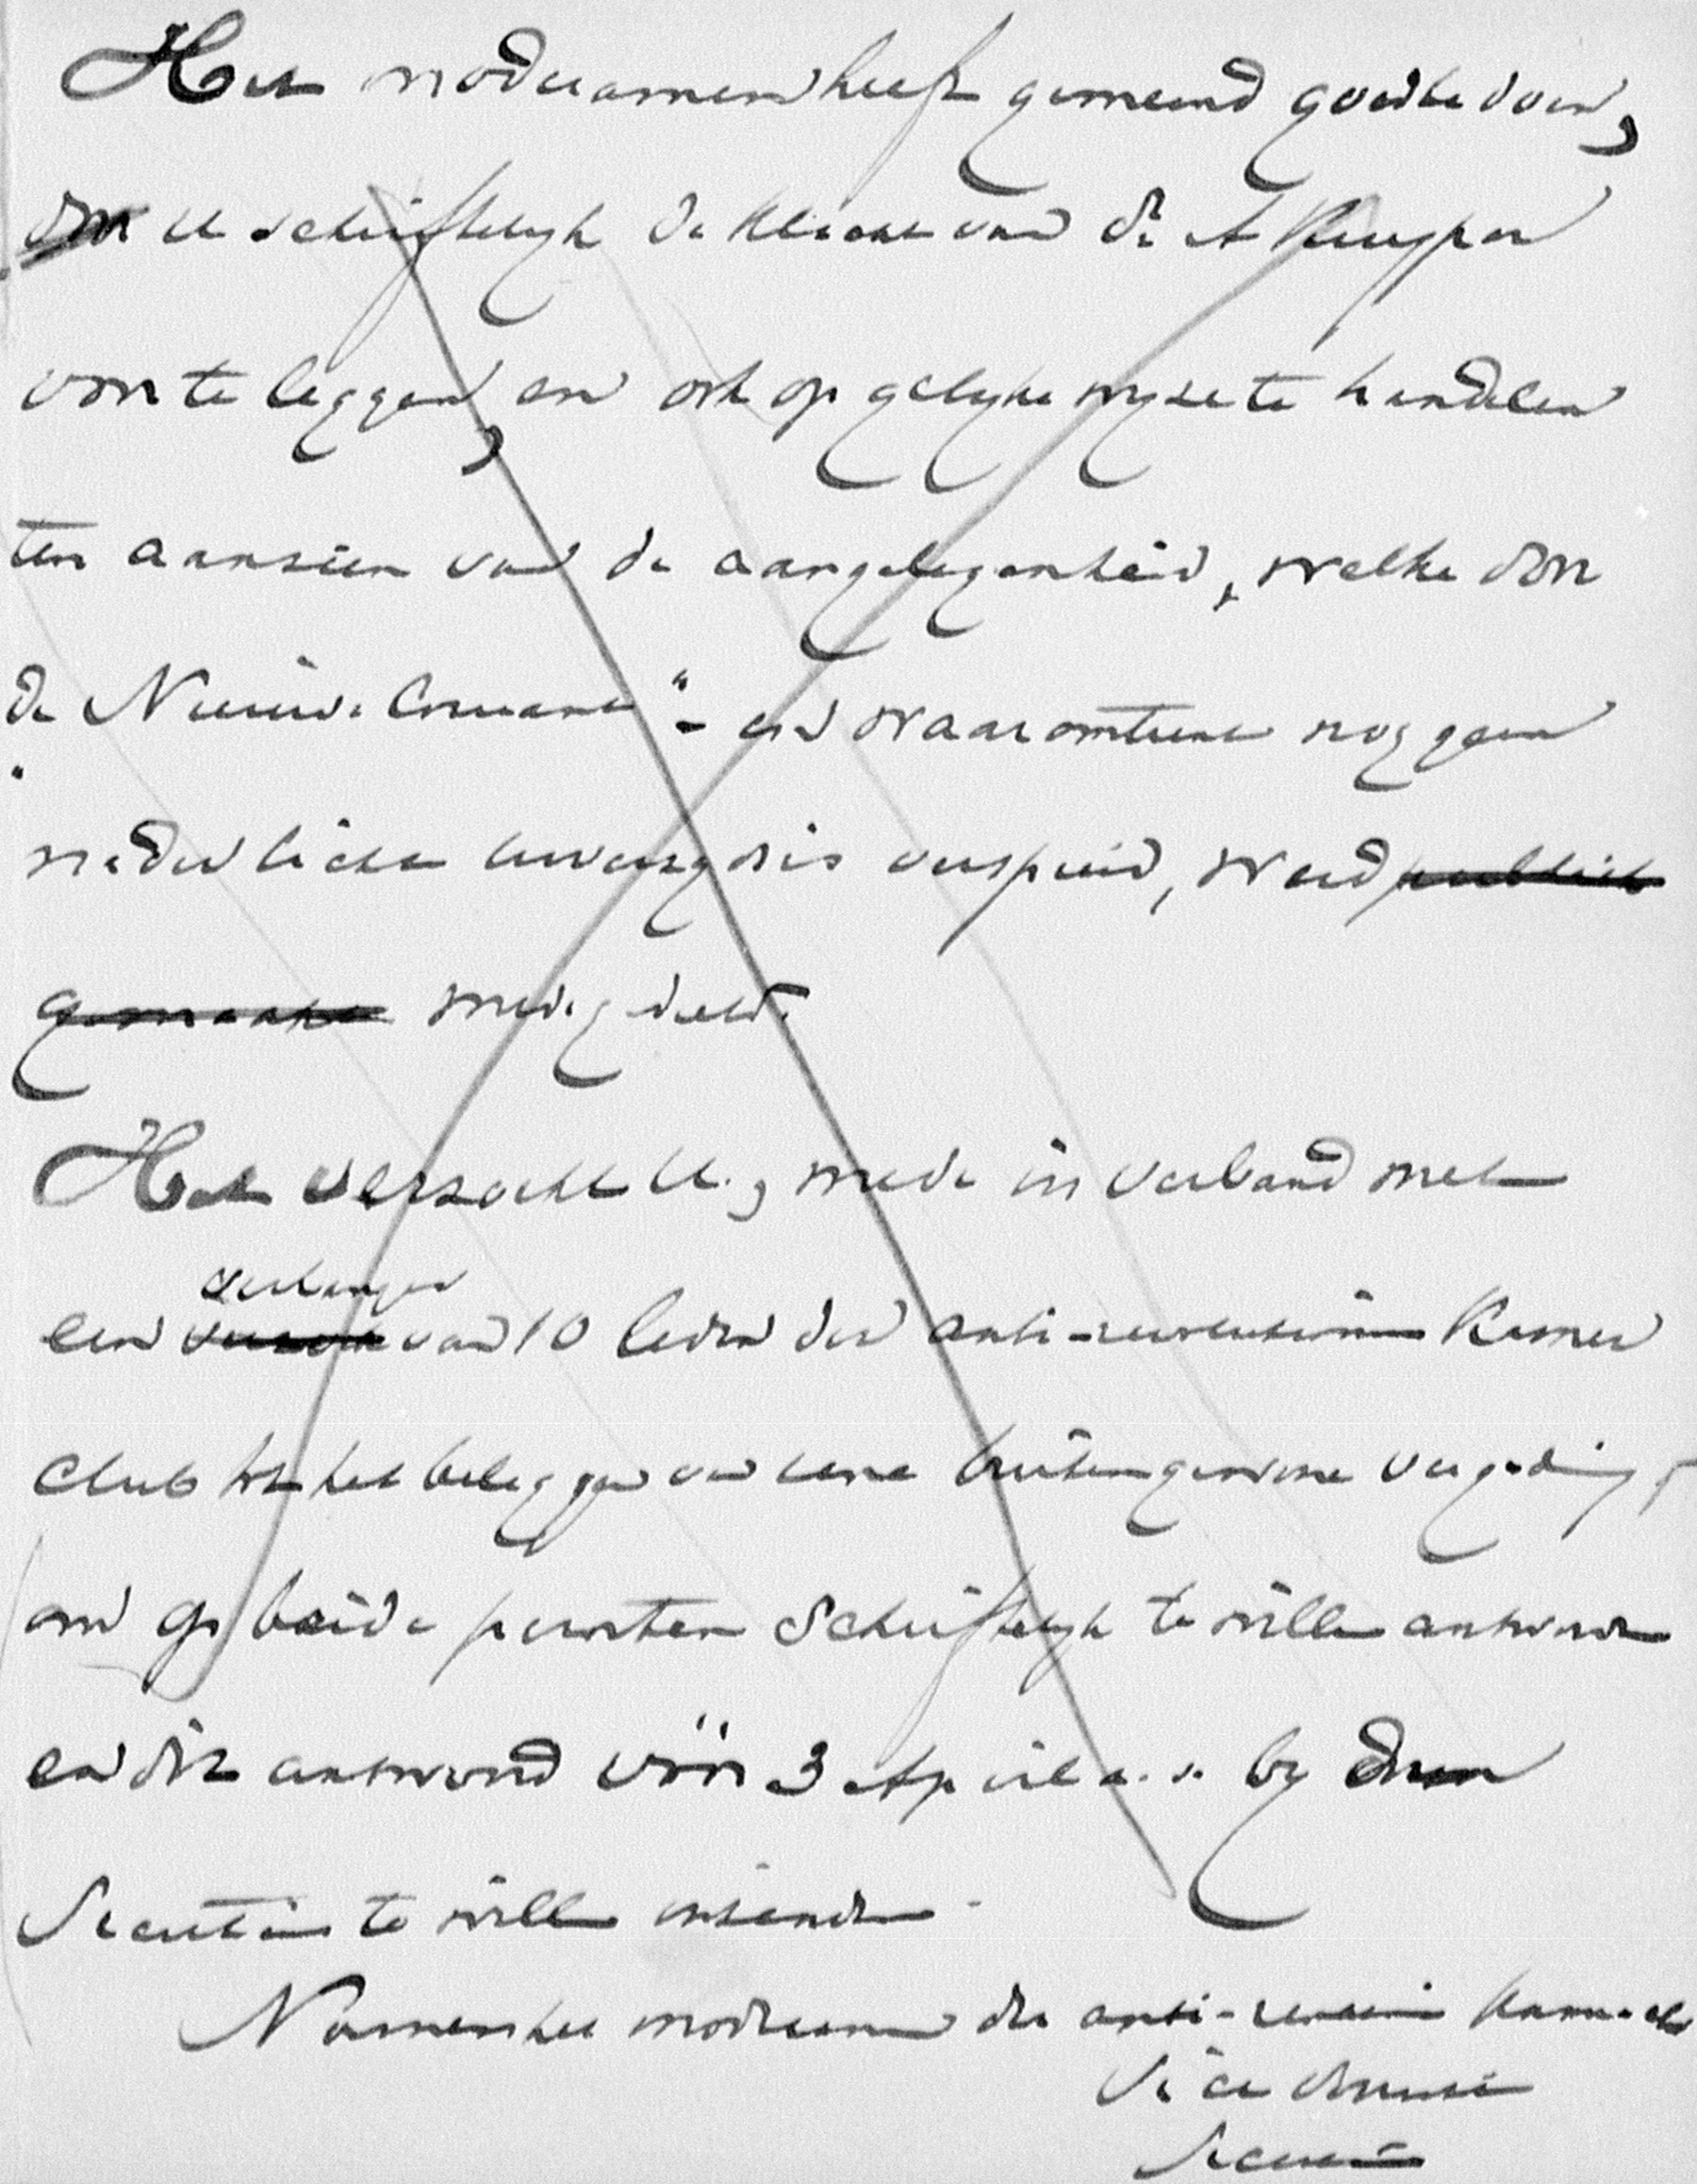 Het moderamen heeft gemeend goed te doen,
om U schriftelijk de klacht van Dr A Kuyper
voor te leggen, en ook op gelijke wijze te handelen
ten aanzien van de aangelegenheid, welke door
de „Nieuwe Courant" - en waaromtrent nog geen
nader licht verspreid, werd publiek
gemaakt medegedeeld.
Het verzoekt U., mede in verband met
verlangen
een verzoek van 10 leden der anti-revolutionaire Kamer
Club tot het beleggen van eene buitengewone vergadering,
om op beide punten schriftelijk te willen antwoorden
en dit antwoord vóór 3 April a.s. by den
Secretaris te willen inzenden.
Namens het moderamen der anti-revol. Kamerclub
Vice Voorzitter
Secretaris